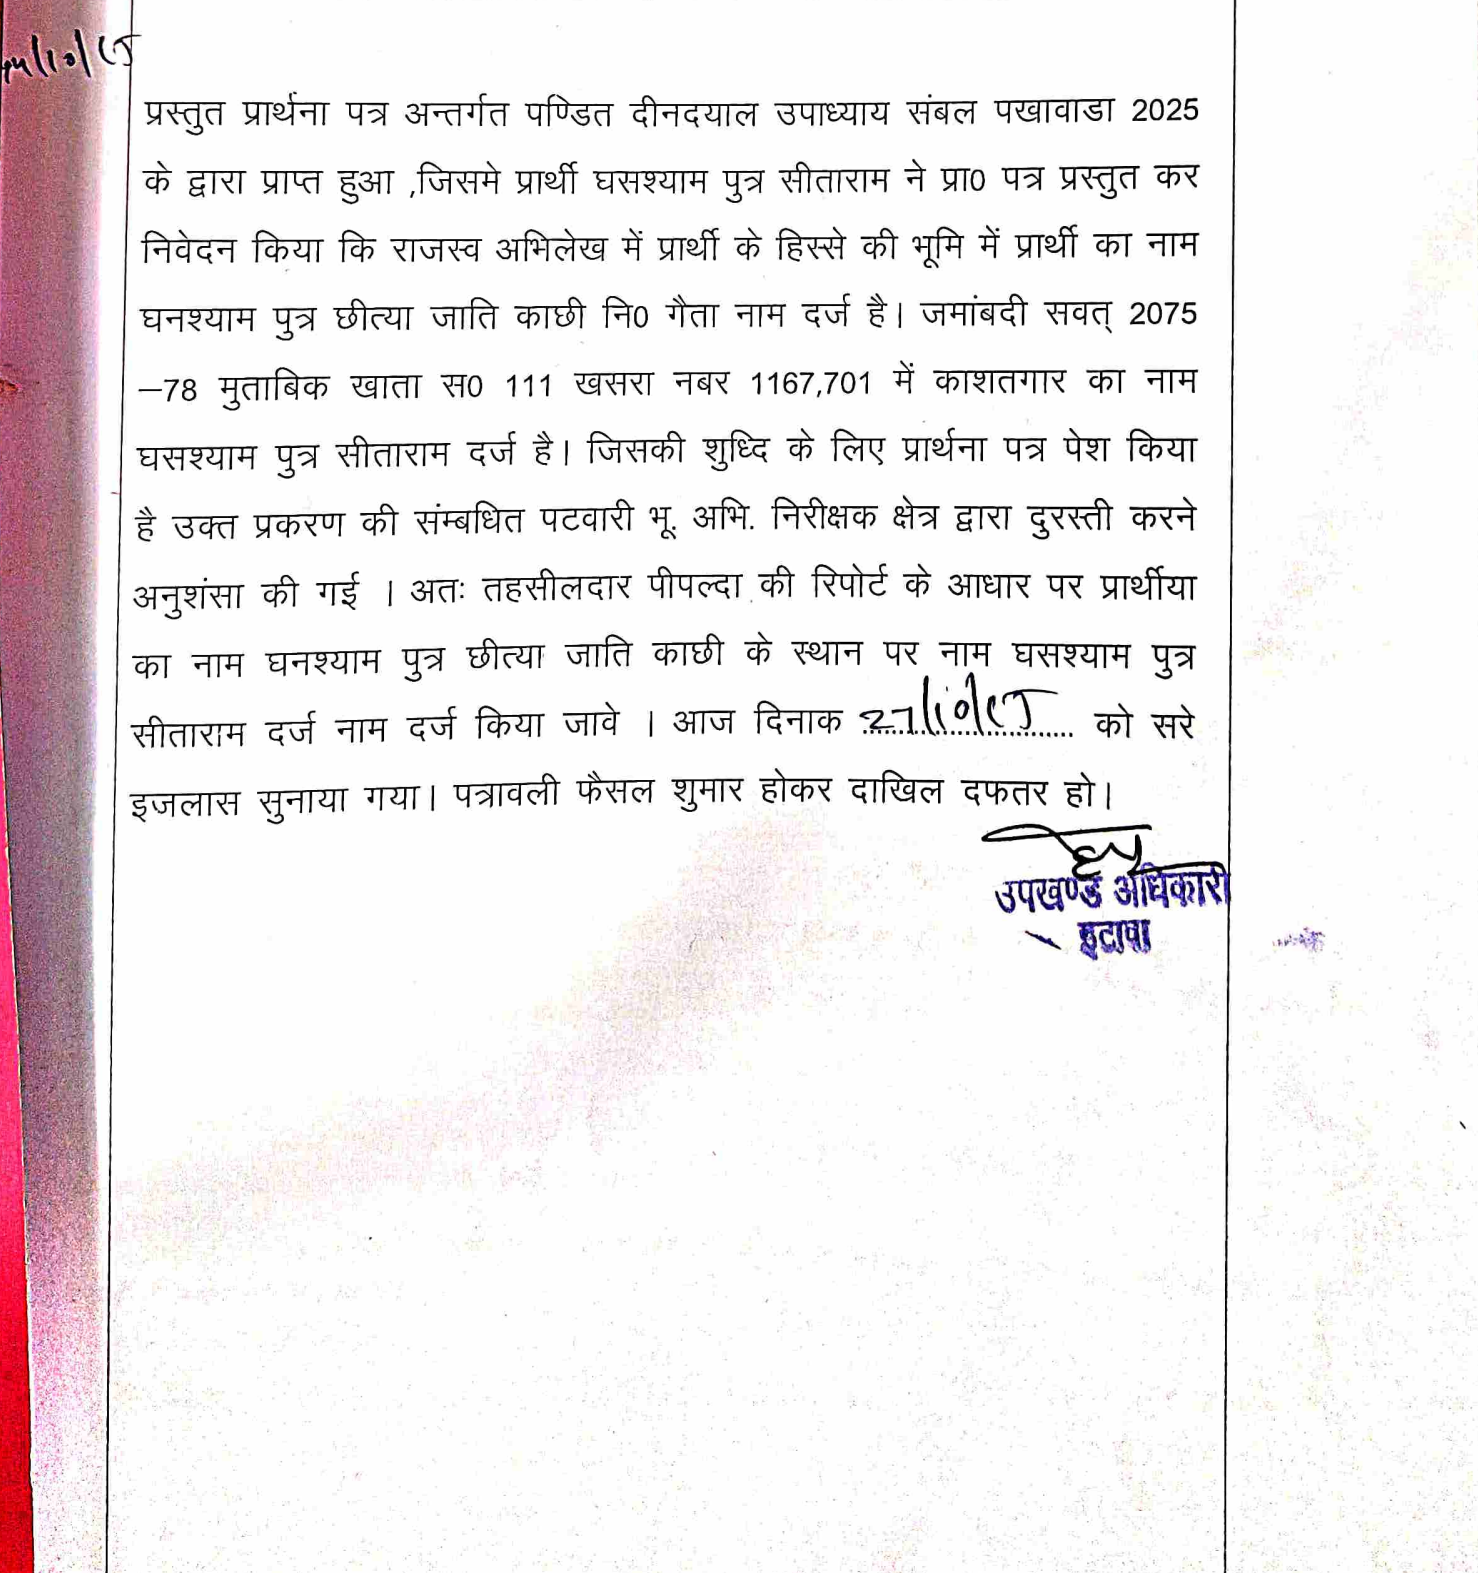 प्रस्तुत प्रार्थना पत्र अन्तर्गत पण्डित दीनदयाल उपाध्याय संबल पखावाडा 2025
के द्वारा प्राप्त हुआ ,जिसमे प्रार्थी घसश्याम पुत्र सीताराम ने प्रा0 पत्र प्रस्तुत कर
निवेदन किया कि राजस्व अभिलेख में प्रार्थी के हिस्से की भूमि में प्रार्थी का नाम
घनश्याम पुत्र छीत्या जाति काछी नि0 गैता नाम दर्ज है। जमांबदी सवत् 2075
–78 मुताबिक खाता स0 111 खसरा नबर 1167,701 में काशतगार का नाम
घसश्याम पुत्र सीताराम दर्ज है। जिसकी शुध्दि के लिए प्रार्थना पत्र पेश किया
है उक्त प्रकरण की संम्बधित पटवारी भू. अभि. निरीक्षक क्षेत्र द्वारा दुरस्ती करने
अनुशंसा की गई । अतः तहसीलदार पीपल्दा की रिपोर्ट के आधार पर प्रार्थीया
का नाम घनश्याम पुत्र छीत्या जाति काछी के स्थान पर नाम घसश्याम पुत्र
सीताराम दर्ज नाम दर्ज किया जावे । आज दिनाक 27/10/25 को सरे
इजलास सुनाया गया। पत्रावली फैसल शुमार होकर दाखिल दफतर हो।
उपखण्ड अधिकारी
इटावा